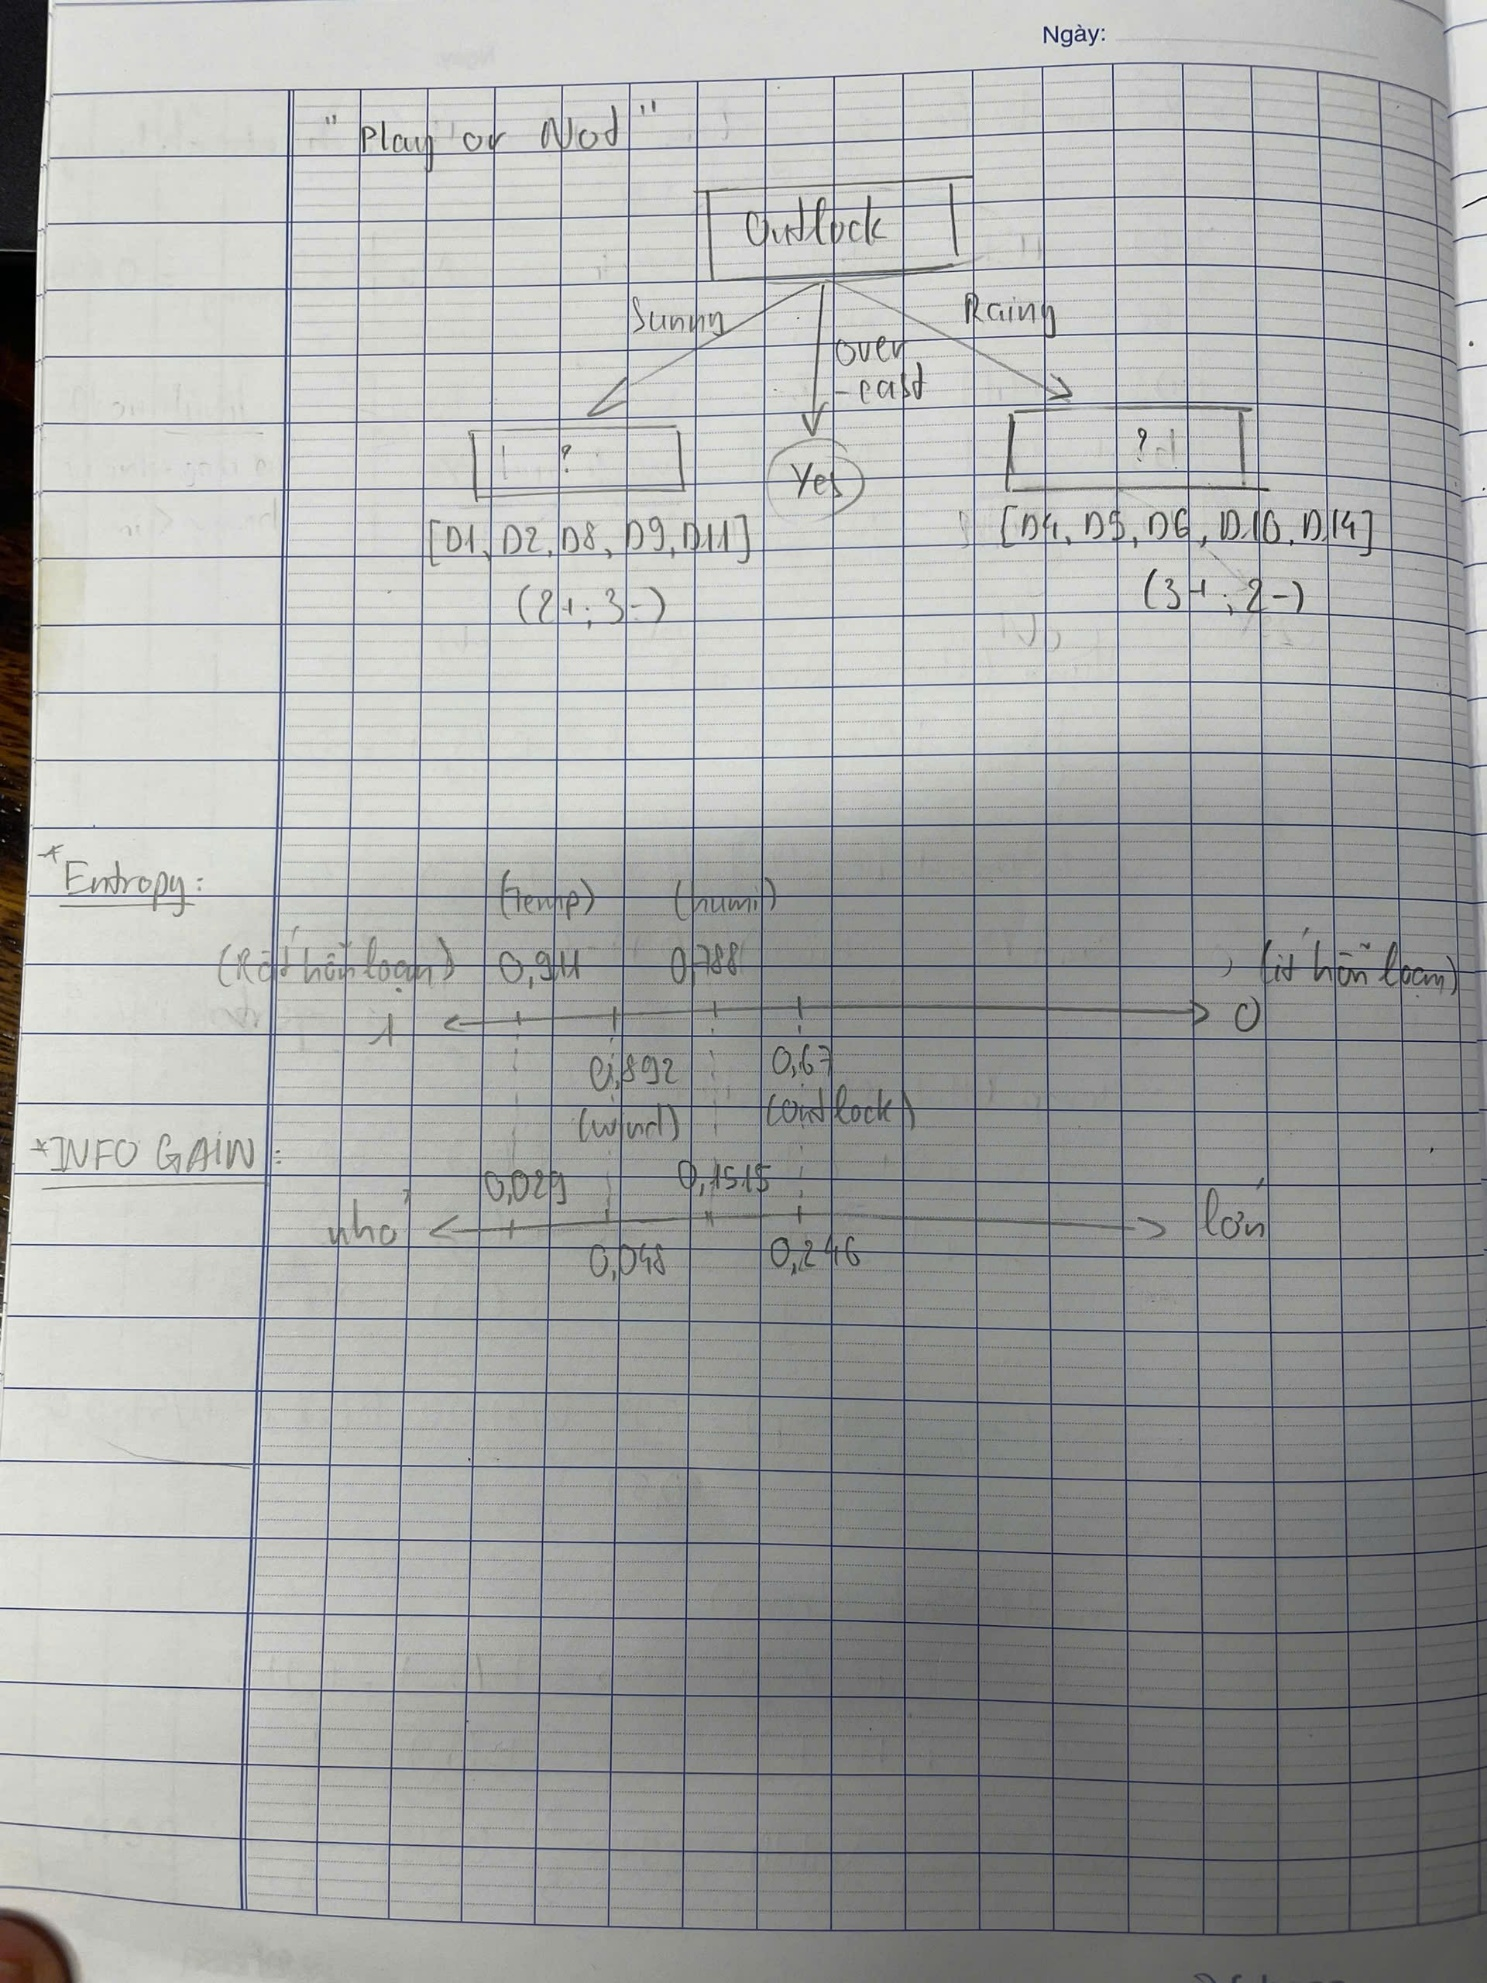 Ngày:
" Play or Not "
Outlock
Sunny
Rainy
over
-cast
?
Yes
?
[D1, D2, D8, D9, D11]
[D4, D5, D6, D10, D14]
(2+; 3-)
(3+; 2-)
* Entropy:
(temp) (humi)
(Rất hỗn loạn) 0,911 0,788 (ít hỗn loạn)
1 0
0,892 0,67
(wind) (outlock)
* INFO GAIN:
0,029 0,1515
nhỏ lớn
0,048 0,246